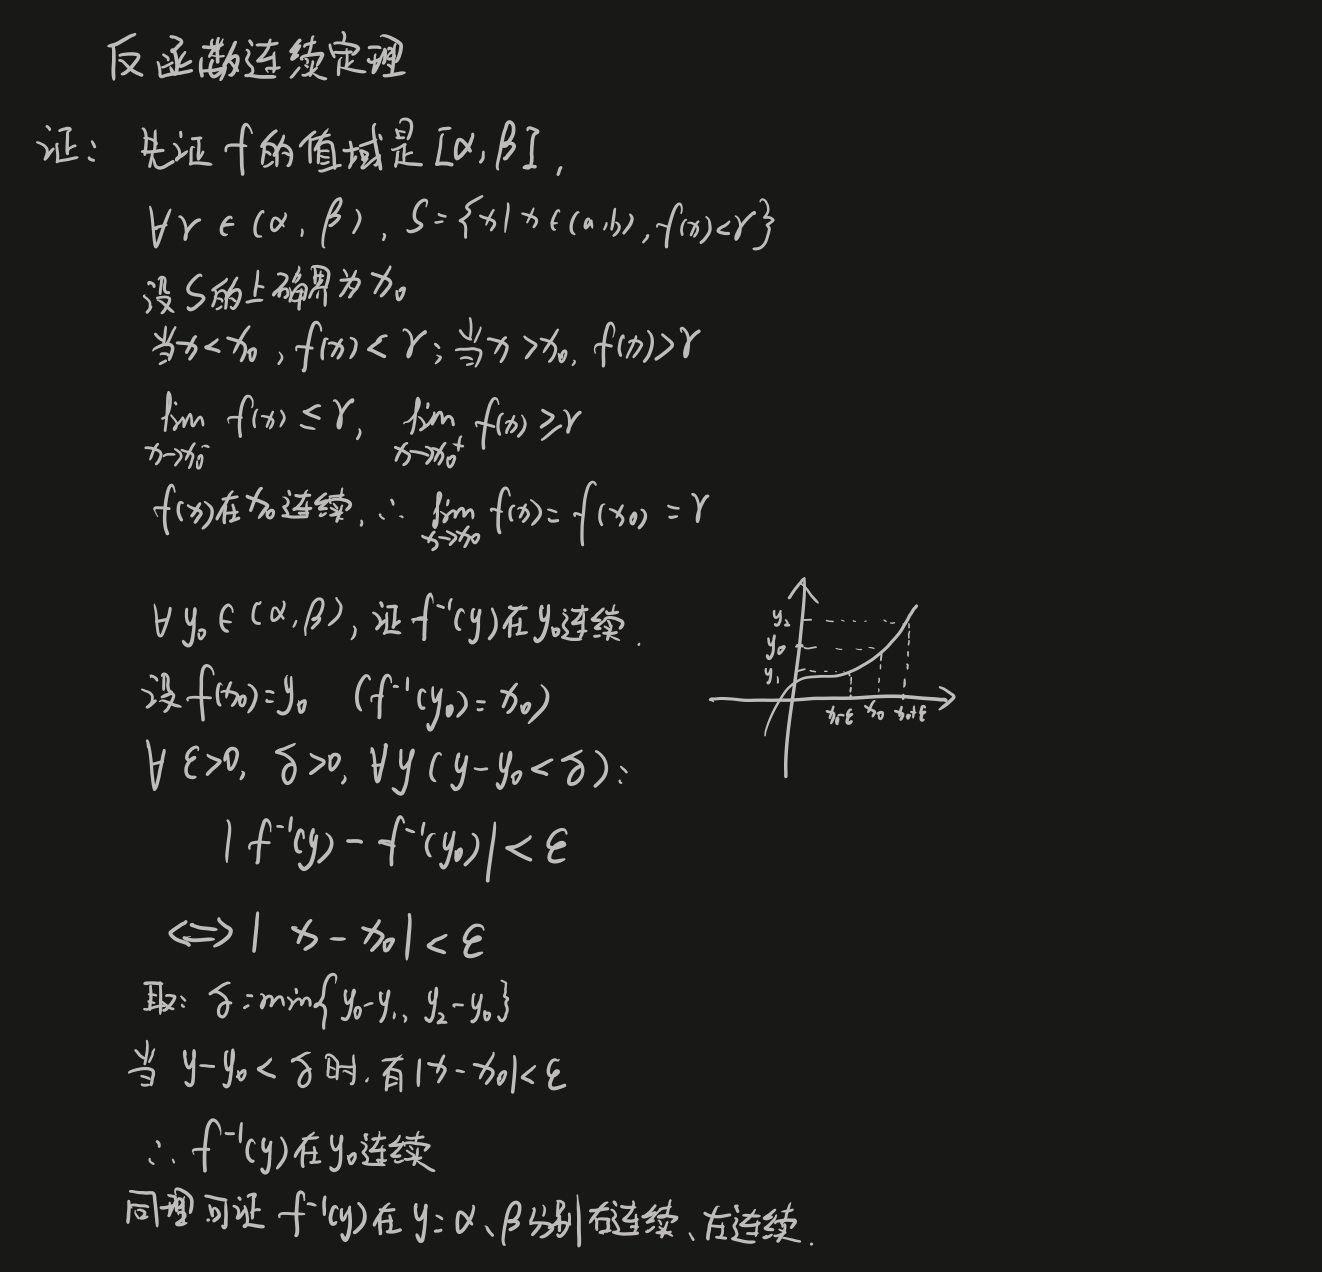 反函数连续定理
证: 先证 f 的值域是 [α, β],
∀γ ∈ (α, β), S={x| x∈(a,b), f(x)<γ}
设 S 的上确界为 x₀
当 x<x₀, f(x)<γ; 当 x>x₀, f(x)>γ
lim x→x₀⁻ f(x) ≤ γ, lim x→x₀⁺ f(x) ≥ γ
f(x) 在 x₀ 连续, ∴ lim x→x₀ f(x) = f(x₀) = γ
∀ y₀ ∈ (α, β), 证 f⁻¹(y) 在 y₀ 连续.
设 f(x₀)=y₀ (f⁻¹(y₀)=x₀)
∀ ε>0, δ>0, ∀y (y-y₀<δ):
|f⁻¹(y) - f⁻¹(y₀)| < ε
⟺ | x - x₀| < ε
取: δ=min{y₀-y₁, y₂-y₀}
当 y-y₀<δ 时. 有 |x-x₀|<ε
∴ f⁻¹(y) 在 y₀ 连续
同理可证 f⁻¹(y) 在 y=α、β 分别右连续、左连续.
y₂
y₀
y₁
x₀-ε x₀ x₀+ε